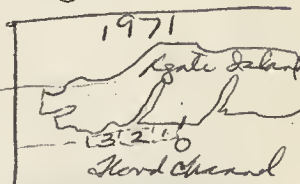 1971
Agate Island
3 2 1 0
Channel